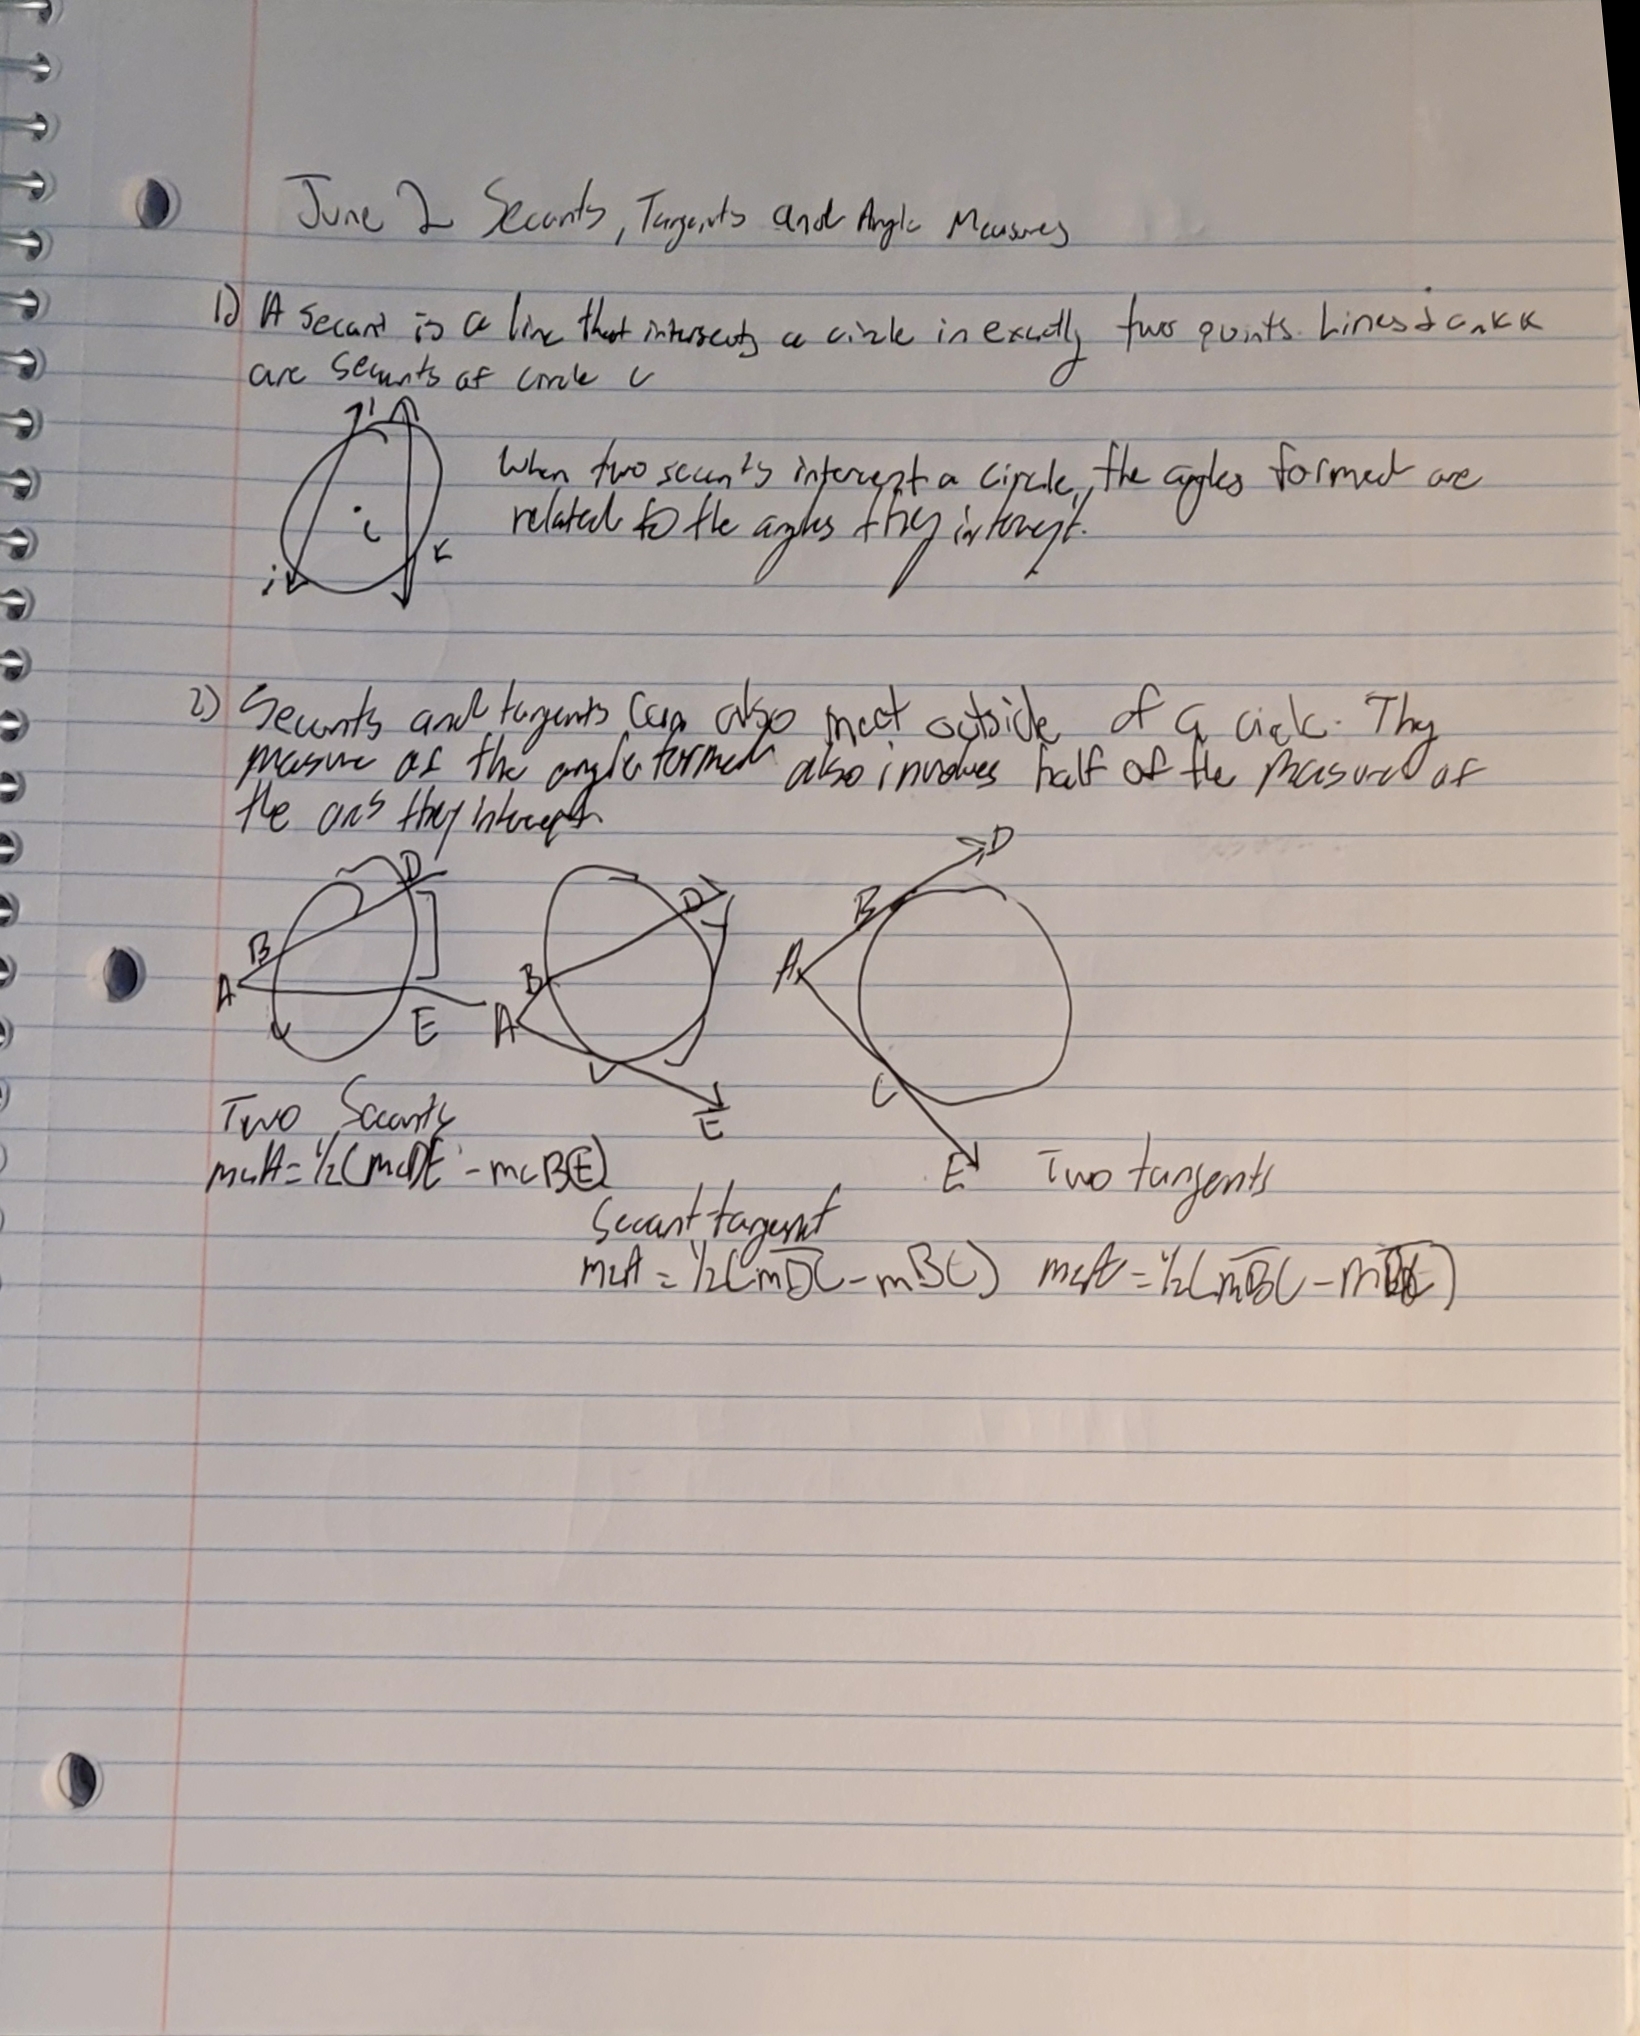 June 2 Secants, Tangents and Angle Measures
1) A secant is a line that intersects a circle in exactly two points. Lines j and k
are secants of circle C
j
C
k
j
When two secants intercept a circle, the angles formed are
related to the angles they intercept.
2) Secants and tangents can also meet outside of a circle. The
measure of the angle formed also involves half of the measure of
the arcs they intercept.
D
B
A
E
D
B
A
C
E
D
B
A
C
E
Two Secants
m∠A = 1/2(m DE - m
Secant tangent
Two tangents
m∠A = 1/2(mDC - mBC)
m∠A = 1/2(mBC - m